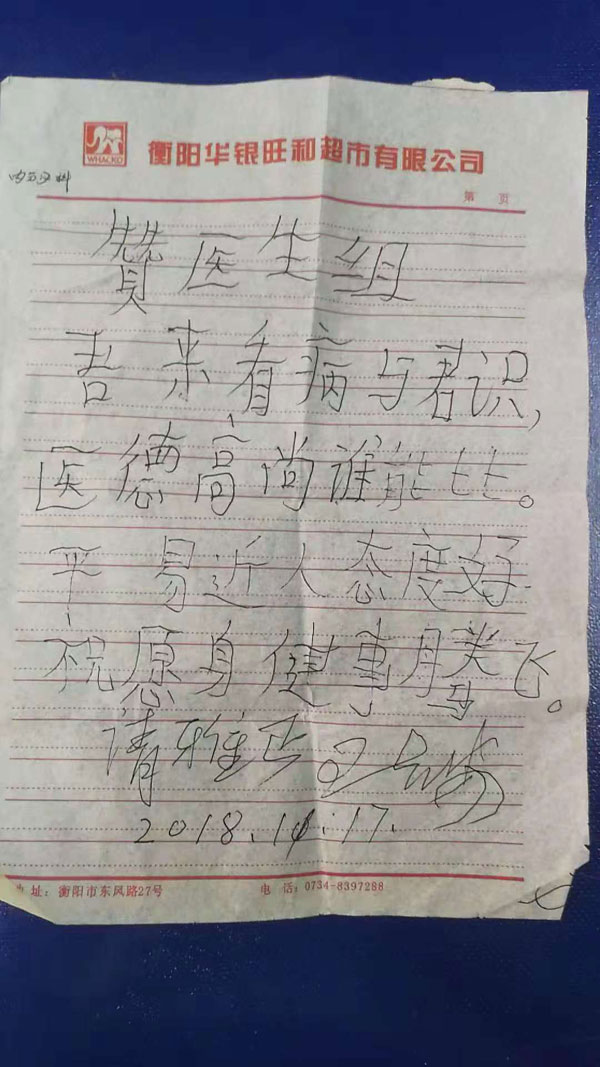 WHACKO
衡阳华银旺和超市有限公司
第 页
赞医生组
吾来看病与君识,
医德高尚谁能比。
平易近人态度好
祝愿身健事腾飞。
请雅正
2018.11.17.
地址：衡阳市东风路27号 电话：0734-8397288